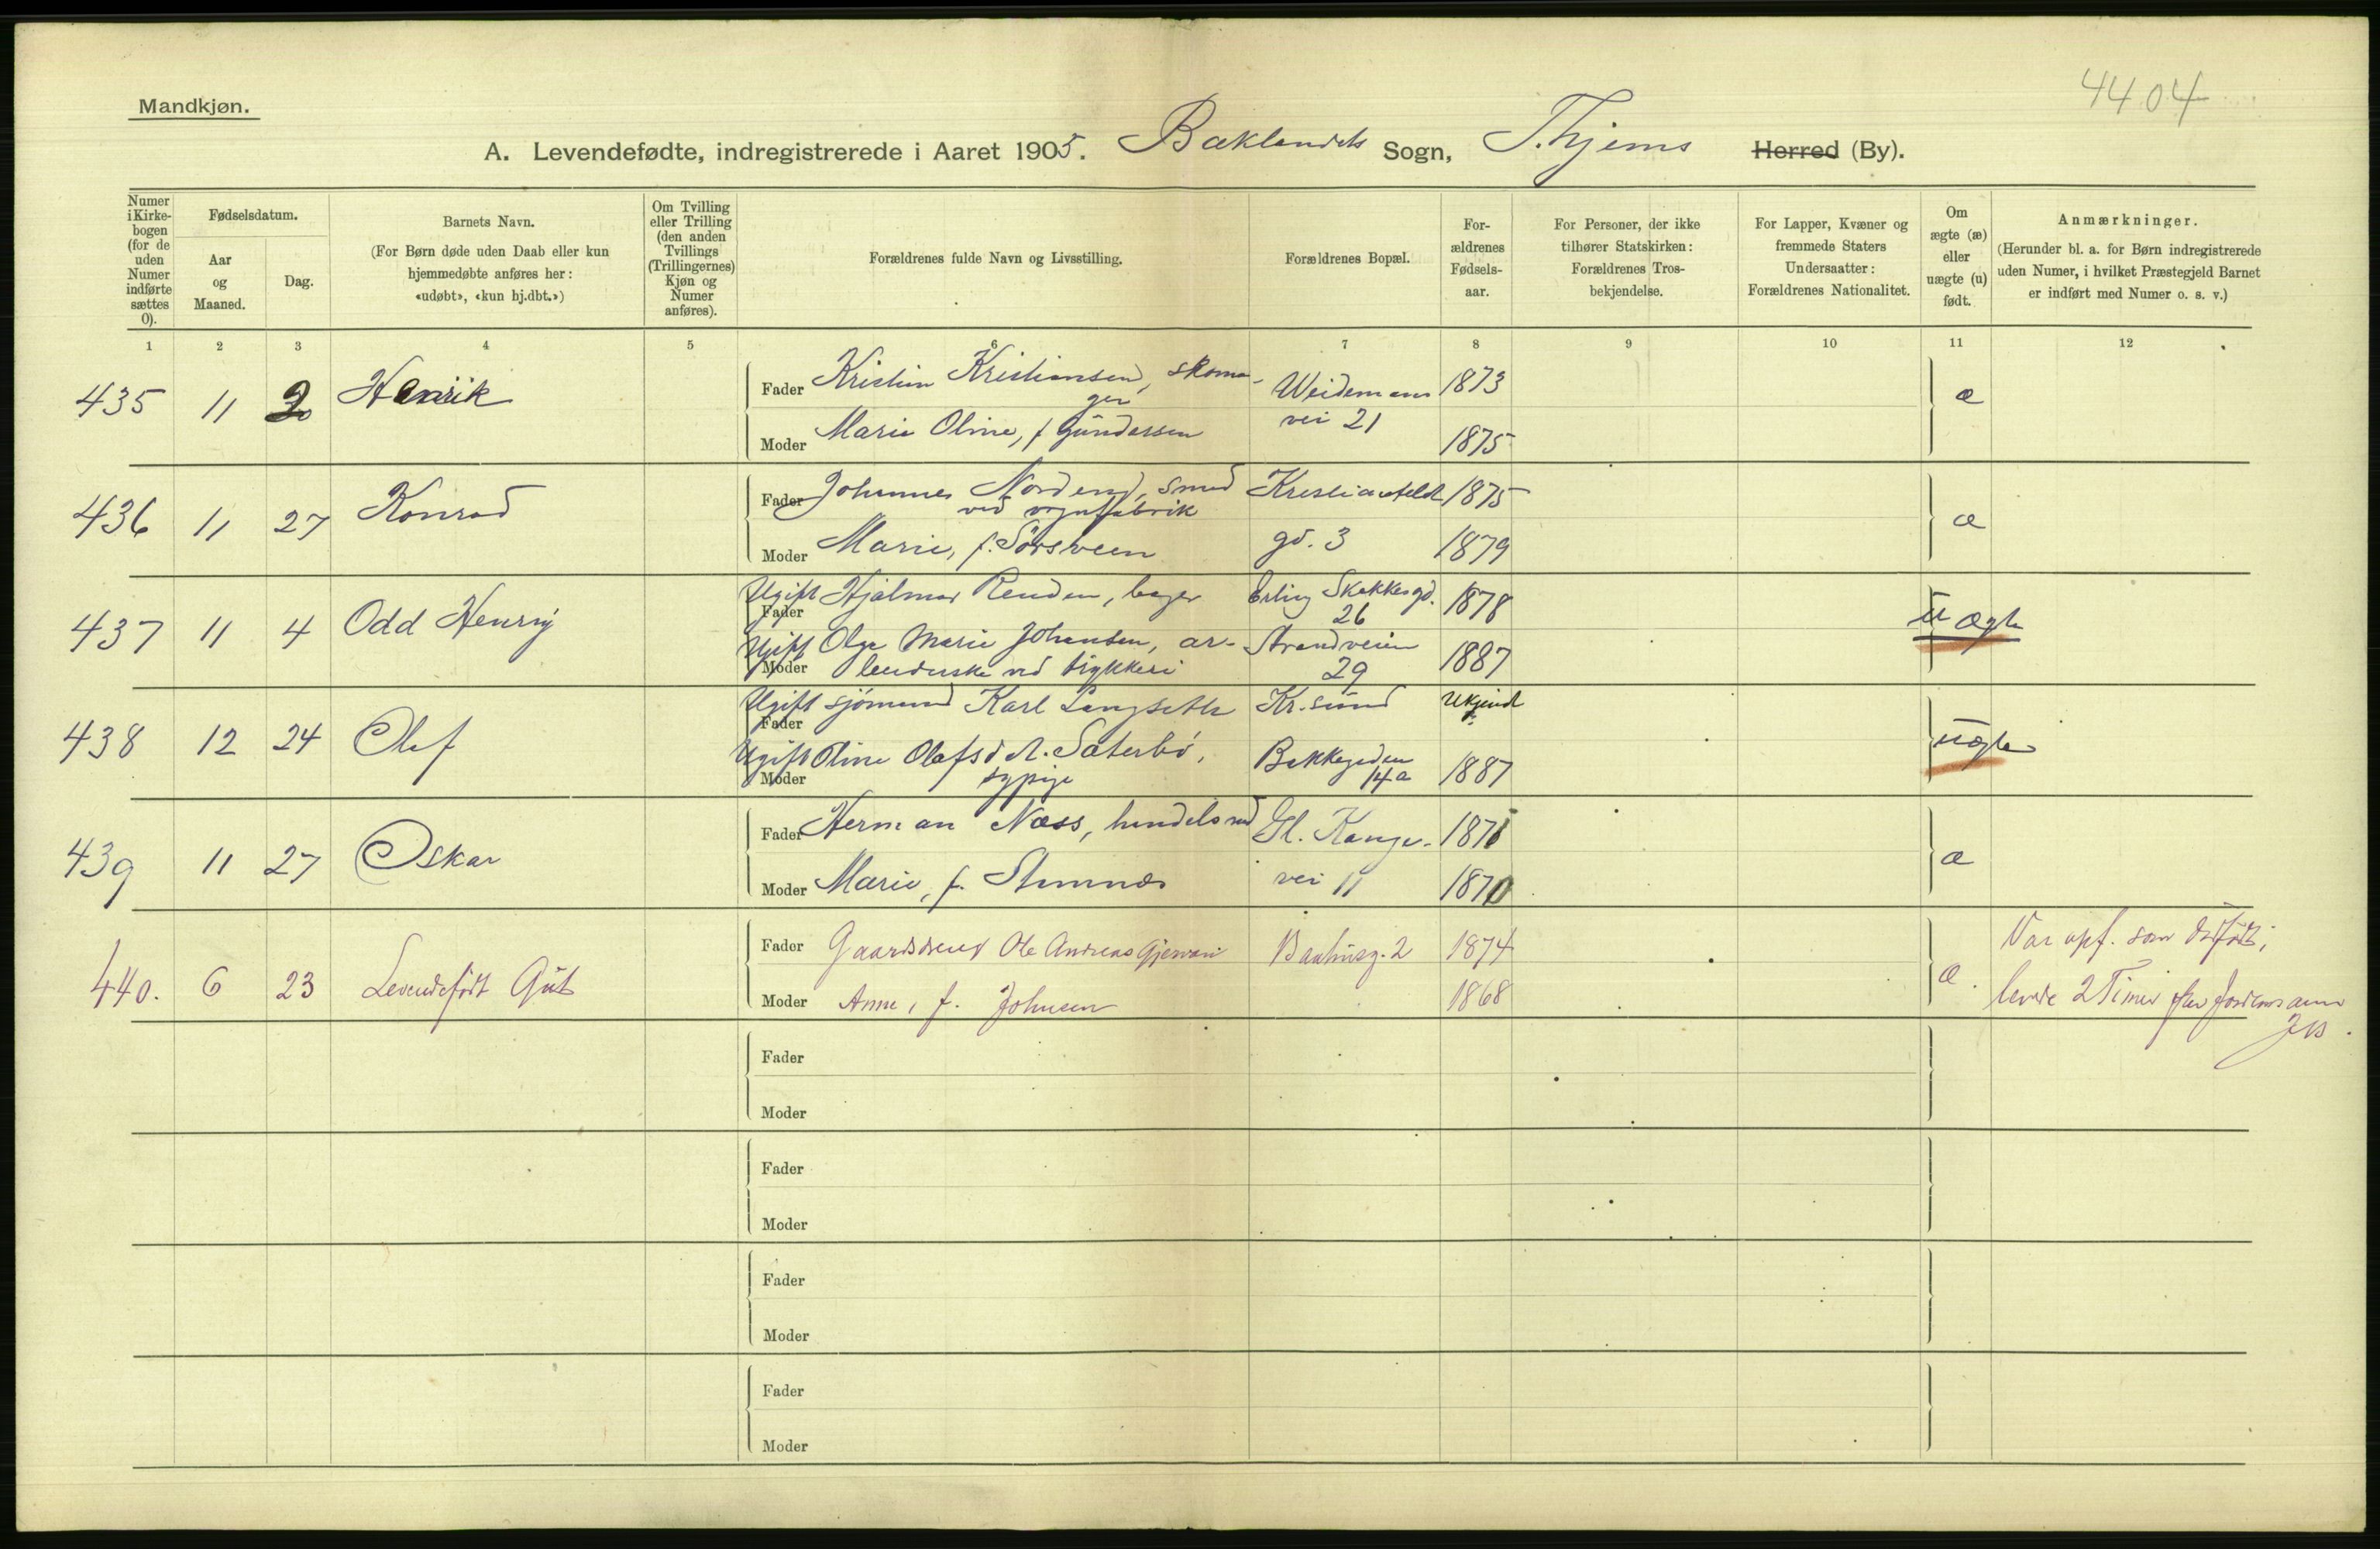 4404
Mandkjøn.
A. Levendefødte, indregistrerede i Aaret 1905. Baklandets Sogn, T.hjems Herred (By).
Numer i Kirkebogen (for de uden Numer indførte sættes 0).
Fødselsdatum.
Aar og Maaned.
Dag.
Barnets Navn.
(For Børn døde uden Daab eller kun hjemmedøbte anføres her: «udøbt», «kun hj.dbt.»)
Om Tvilling eller Trilling (den anden Tvillings (Trillingernes) Kjøn og Numer anføres).
Forældrenes fulde Navn og Livsstilling.
Forældrenes Bopæl.
Forældrenes Fødselsaar.
For Personer, der ikke tilhører Statskirken: Forældrenes Trosbekjendelse.
For Lapper, Kvæner og fremmede Staters Undersaatter: Forældrenes Nationalitet.
Om ægte (æ) eller uægte (u) født.
Anmærkninger.
(Herunder bl. a. for Børn indregistrerede uden Numer, i hvilket Præstegjeld Barnet er indført med Numer o. s. v.)
1 2 3 4 5 6 7 8 9 10 11 12
435 11 2 Henrik Fader Kristian Kristiansen, skoma- Weidemans 1873 æ
ger vei 21
Moder Marie Oline, f Gundersen 1875
436 11 27 Konrad Fader Johannes Nordend, smed Kristiansfeldt 1875 æ
ved vognfabrik
Moder Marie, f. Sørsveen gd. 3 1879
437 11 4 Odd Henry Ugift Fader Hjalmar Renden, bager Erling Skakkesgd. 26 1878 uægte
Ugift Moder Olga Marie Johansen, ar- Strandveien 1887
beiderske ved trykkeri 29
438 12 24 Olef Ugift Fader sjömand Karl Langseth Kr.sund Ukjendt uægte
Ugift Moder Oline Olafsd.t. Sæterbö, Bakkegaden 1887
sypige 14a
439 11 27 Oskar Fader Herman Næss, handelsmd Gl. Konge- 1871 æ
Moder Marie, f. vei 11 1870
440. 6 23 Levendefødt Gut Fader Gaardsdreng Ole Andreas Baahusg. 2 1874 æ. Var opf. som dødfødt;
Moder Anne, f. Johnsen 1868 levde 2 Timer efter Jordemoderens
Fader
Moder
Fader
Moder
Fader
Moder
Fader
Moder